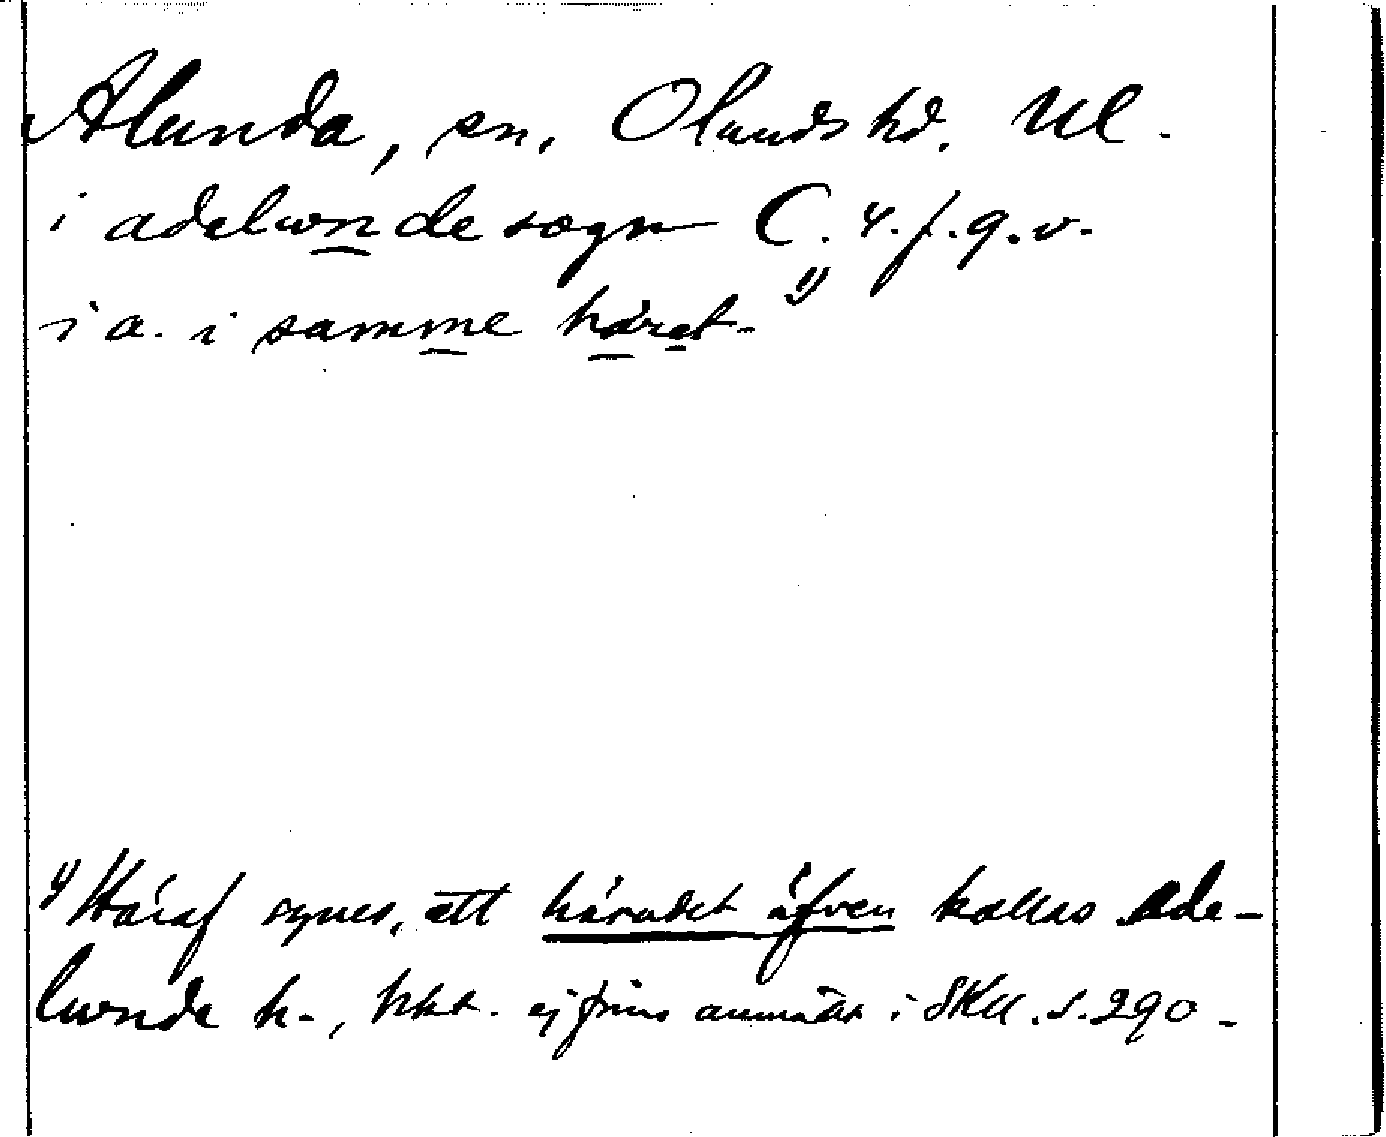 Alunda, sn, Olands hd. Ul.
i adelwnde sogn C. 4. f. 9. v.
i a. i samme häret. 1)
1) Häraf synes, att häradet äfven kallas Ade-
lwnda h., hkt. ej fins anmärkt i SKU. s. 290.